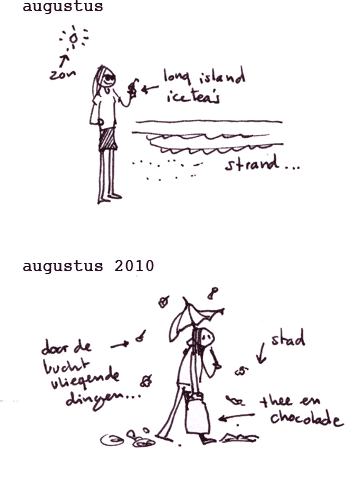 augustus
zon
long island
icetea's
strand...
augustus 2010
door de
lucht
vliegende
dingen...
stad
thee en
chocolade